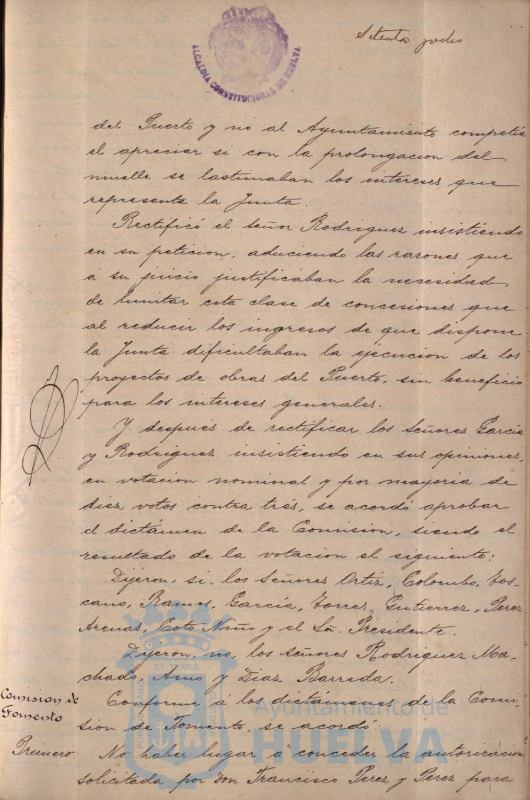 Setenta y ocho
ALCALDIA CONSTITUCIONAL DE HUELVA
del Puerto y no al Ayuntamiento competía
el apreciar si con la prolongacion del
muelle se lastimaban los intereses que
representa la Junta.
Rectificó el Señor Rodriguez insistiendo
en su peticion, aduciendo las razones que
á su juicio justificaban la necesidad
de limitar esta clase de concesiones que
al reducir los ingresos de que dispone
la Junta dificultaban la ejecucion de los
proyectos de obras del Puerto, sin beneficio
para los intereses generales.
Y despues de rectificar los Señores García
y Rodriguez insistiendo en sus opiniones,
en votacion nominal y por mayoria de
diez votos contra trés, se acordó aprobar
el dictámen de la Comision, siendo el
resultado de la votacion el siguiente:
Dijeron, si, los Señores Ortiz, Colombo, Tos-
cano, Ramos, García, Torres, Gutierrez, Perez
Arenas, Coto Niño y el Sr. Presidente.
Dijeron, no, los señores Rodriguez Ma-
chado, Amo y Diaz Barreda.
Comision de
Fomento
Conforme á los dictámenes de la Comi-
sion de Fomento, se acordó
Primero
No haber lugar á conceder la autorizacion
solicitada por Don Francisco Perez y Perez para
Ayuntamiento de
HUELVA